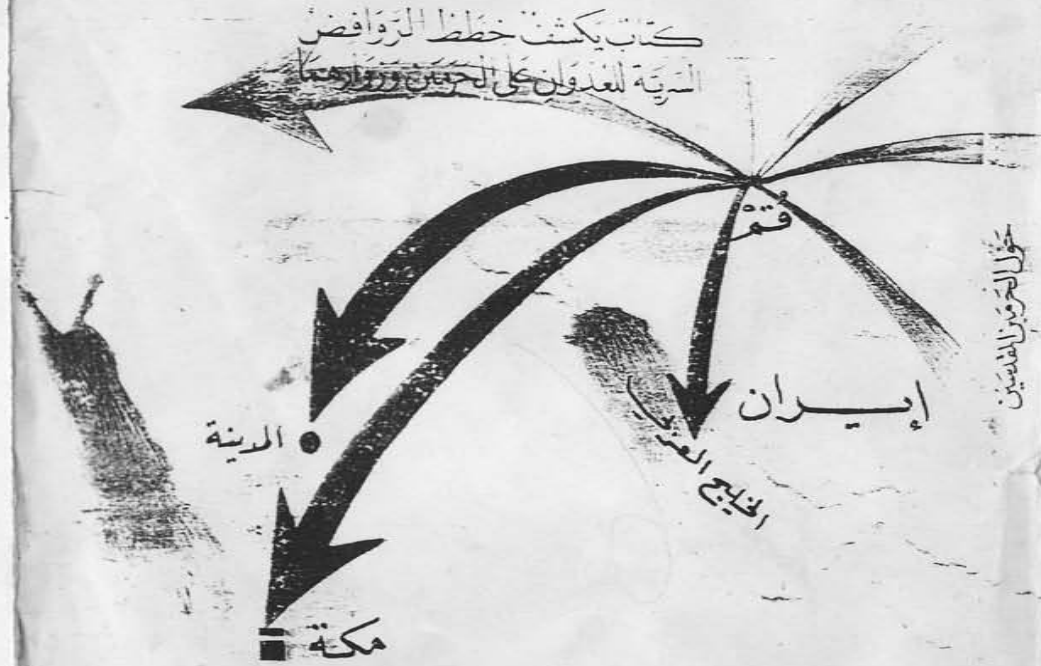 كتاب يكشف خطط الروافض
السرية للعدوان على الحرمين وزوارهما
قُمْ
حول الحرمين المقدسين
إيران
الخليج العربي
المدينة
مكة